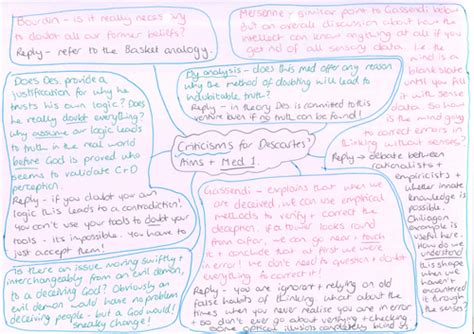 Bourdin - is it really necessary
to doubt all our former beliefs?
Reply - refer to the Basket analogy.
Mersenne - similar point to Gassendi below
But an overall discussion about how the
intellect can know anything at all if you
get rid of all sensory data. I.e. the
mind is a
blank sheet
until you
fill it
with sense
data. So how
is the mind going
to correct errors in
thinking without senses?
Reply → debate between
rationalists +
empiricists +
whether innate
knowledge is
possible.
Chiliagon
example is
useful here.
How do we
understand
this shape
when we
haven't
experienced
it?
My analysis - does this med offer any reason
why the method of doubting will lead to
indubitable truth?
Reply - in theory Des is committed to this
venture even if no truth can be found!
Does Des. provide a
justification for why he
trusts his own logic? Does
he really doubt everything?
Why assume our logic leads
to truth in the real world
before God is proved who
seems to validate C+D
perception.
Reply - if you doubt your own
logic this leads to a contradiction!
You can't use your tools to doubt your
tools - its impossible. You have to
just accept them!
Criticisms for Descartes'
Aims + Med 1.
Gassendi - explains that when we
are deceived, we can use empirical
methods to verify + correct the
deception. If a tower looks round
from afar, we can go near + touch
it + conclude that at first we were
in error! We don't need to question + doubt
everything to correct it!
Reply - you are ignorant + relying on old
false habits of thinking. What about the
times when you never realise you are in error
+ so don't ever go about verifying + checking
Some optical illusions completely blind us
Is there an issue moving swiftly +
interchangeably from an evil demon,
to a deceiving God? Obviously an
evil demon would have no problem
deceiving people - but a God would!
Sneaky change!